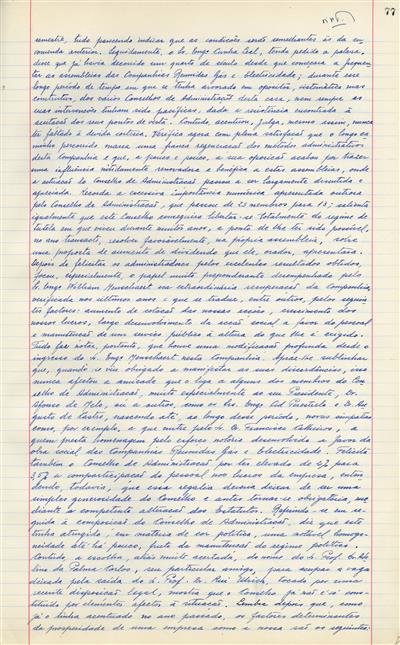 77
semestre, tudo parecendo indicar que as condições serão semelhantes às da co-
menda anterior. Seguidamente, o Sr. Engo Cunha Leal, tendo pedido a palavra,
disse que já havia decorrido um quarto de século desde que começara a frequen-
tar as assembleias das Companhias Reunidas Gás e Electricidade; durante esse
longo período de tempo em que se tinha arvorado em opositor, sistemático mas
construtivo, dos vários Conselhos de Administração desta casa, nem sempre as
suas intervenções tinham sido pacíficas, dada a resistência encontrada à
aceitação dos seus pontos de vista. Contudo, acentuou, julga, mesmo assim, nunca
ter faltado à devida cortesia. Verifica agora com plena satisfação que o longo ca-
minho percorrido marca uma franca regeneração dos métodos administrativos
desta Companhia e que, a pouco e pouco, a sua oposição acabou por trazer
uma influência nitidamente renovadora e benéfica a estas assembleias, onde
a actuação do Conselho de Administração passou a ser largamente discutida e
apreciada. Recorda a excessiva importância numérica apresentada outrora
pelo Conselho de Administração, que passou de 23 membros para 13; salienta
igualmente que este Conselho conseguiu libertar-se totalmente do regime de
tutela em que viveu durante muitos anos, a ponto de lhe ter sido possível,
no ano transacto, resolver favoravelmente, na própria assembleia, sobre
uma proposta de aumento de dividendo que ele, orador, apresentara.
Depois de felicitar os administradores pelos excelentes resultados obtidos,
focou, especialmente, o papel muito preponderante desempenhado pelo
Sr. Engo William Monschaert na extraordinária recuperação da Companhia
verificada nos últimos anos e que se traduz, entre outros, pelos seguin-
tes factores: aumento de cotação das nossas acções, crescimento dos
nossos lucros, largo desenvolvimento da acção social a favor do pessoal
e manutenção de um serviço público à altura do que lhe é exigido.
Tudo faz notar, portanto, que houve uma modificação profunda desde o
ingresso do Sr. Engo Monschaert nesta Companhia. Apraz-lhe sublinhar
que, quando se viu obrigado a manifestar as suas discordâncias, isso
nunca afectou a amizade que o liga a alguns dos membros do Con-
selho de Administração, muito especialmente ao seu Presidente, Sr.
Afonso de Melo, ou a outros, como os Srs. Engo Cid Perestrelo e Dr. Au-
gusto de Castro, nascendo até, ao longo desse período, novas simpatias
como, por exemplo, a que nutre pelo Sr. Dr. Francisco Calheiros, a
quem presta homenagem pelo esforço notório desenvolvido a favor da
obra social das Companhias Reunidas Gás e Electricidade. Felicita
também o Conselho de Administração por ter elevado de 2% para
3,5% a comparticipação do pessoal nos lucros da empresa, enten-
dendo, todavia, que essa regalia deveria deixar de ser uma
simples generosidade do Conselho e antes tornar-se obrigatória, me-
diante a competente alteração dos Estatutos. Referindo-se em se-
guida à composição do Conselho de Administração, diz que este
tinha atingido, em matéria de cor política, uma notável homoge-
neidade até há pouco, fruto da manutenção do regime político.
Contudo, a escolha, aliás muito acertada, do nome do Sr. Prof. Dr. Ade-
lino da Palma Carlos, seu particular amigo, para ocupar a vaga
deixada pela saída do Sr. Prof. Dr. Rui Ulrich, tocado por uma
recente disposição legal, mostra que o Conselho já não é só cons-
tituído por elementos afectos à situação. Lembra depois que, como
já o tinha acentuado no ano passado, os factores determinantes
da prosperidade de uma empresa como a nossa são os seguintes: